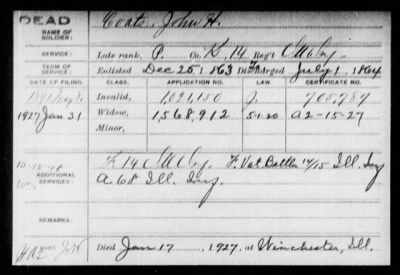 DEAD
NAME OF SOLDIER: Coats, John H.
SERVICE: Late rank, P. Co. K, 14 Reg't Ill Cav
TERM OF SERVICE: Enlisted Dec 25, 1863 Discharged July 1, 1864
DATE OF FILING. CLASS. APPLICATION NO. LAW. CERTIFICATE NO.
Invalid, 1,021,150 J. 708,989
1927 Jan 31 Widow, 1,568,912 5-1-20 A2-15-27
Minor,
ADDITIONAL SERVICES: F. 14 Ill Cav, F. Vet. Battln 14/15 Ill. Inf
A 68 Ill. Inf.
REMARKS:
Died Jan 17, 1927, at Winchester, Ill.